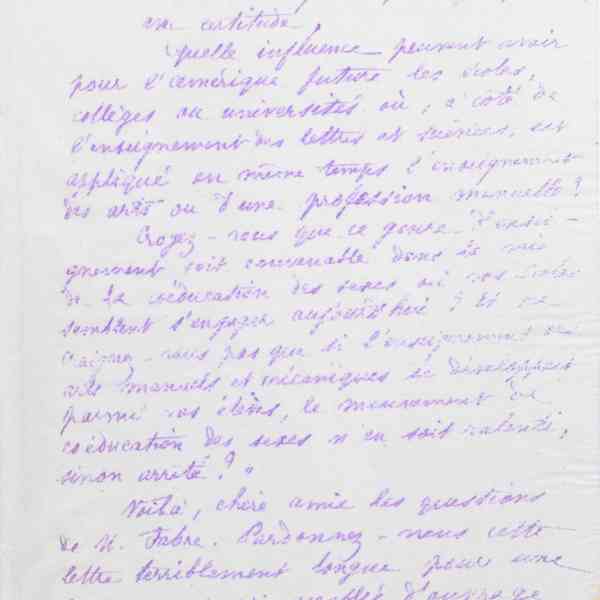 une certitude,
Quelle influence peuvent avoir
pour l'amérique future les écoles,
collèges ou universités où, à côté de
l'enseignement des lettres et sciences, est
appliqué en même temps l'enseignement
des arts ou d'une profession manuelle?
Croyez-vous que ce genre d'ensei-
gnement soit convenable dans la voie
de la coéducation des sexes où vos
semblent s'engager aujourd'hui? Et ne
craignez-vous pas que si l'enseignement
manuels et mécaniques se développait
parmi vos élèves, le mouvement de
coéducation des sexes n'en soit ralenti,
sinon arrêté? "
Voilà, chère amie les questions
de M. Fabre. Pardonnez-nous cette
lettre terriblement longue pour une
d'ouvrage